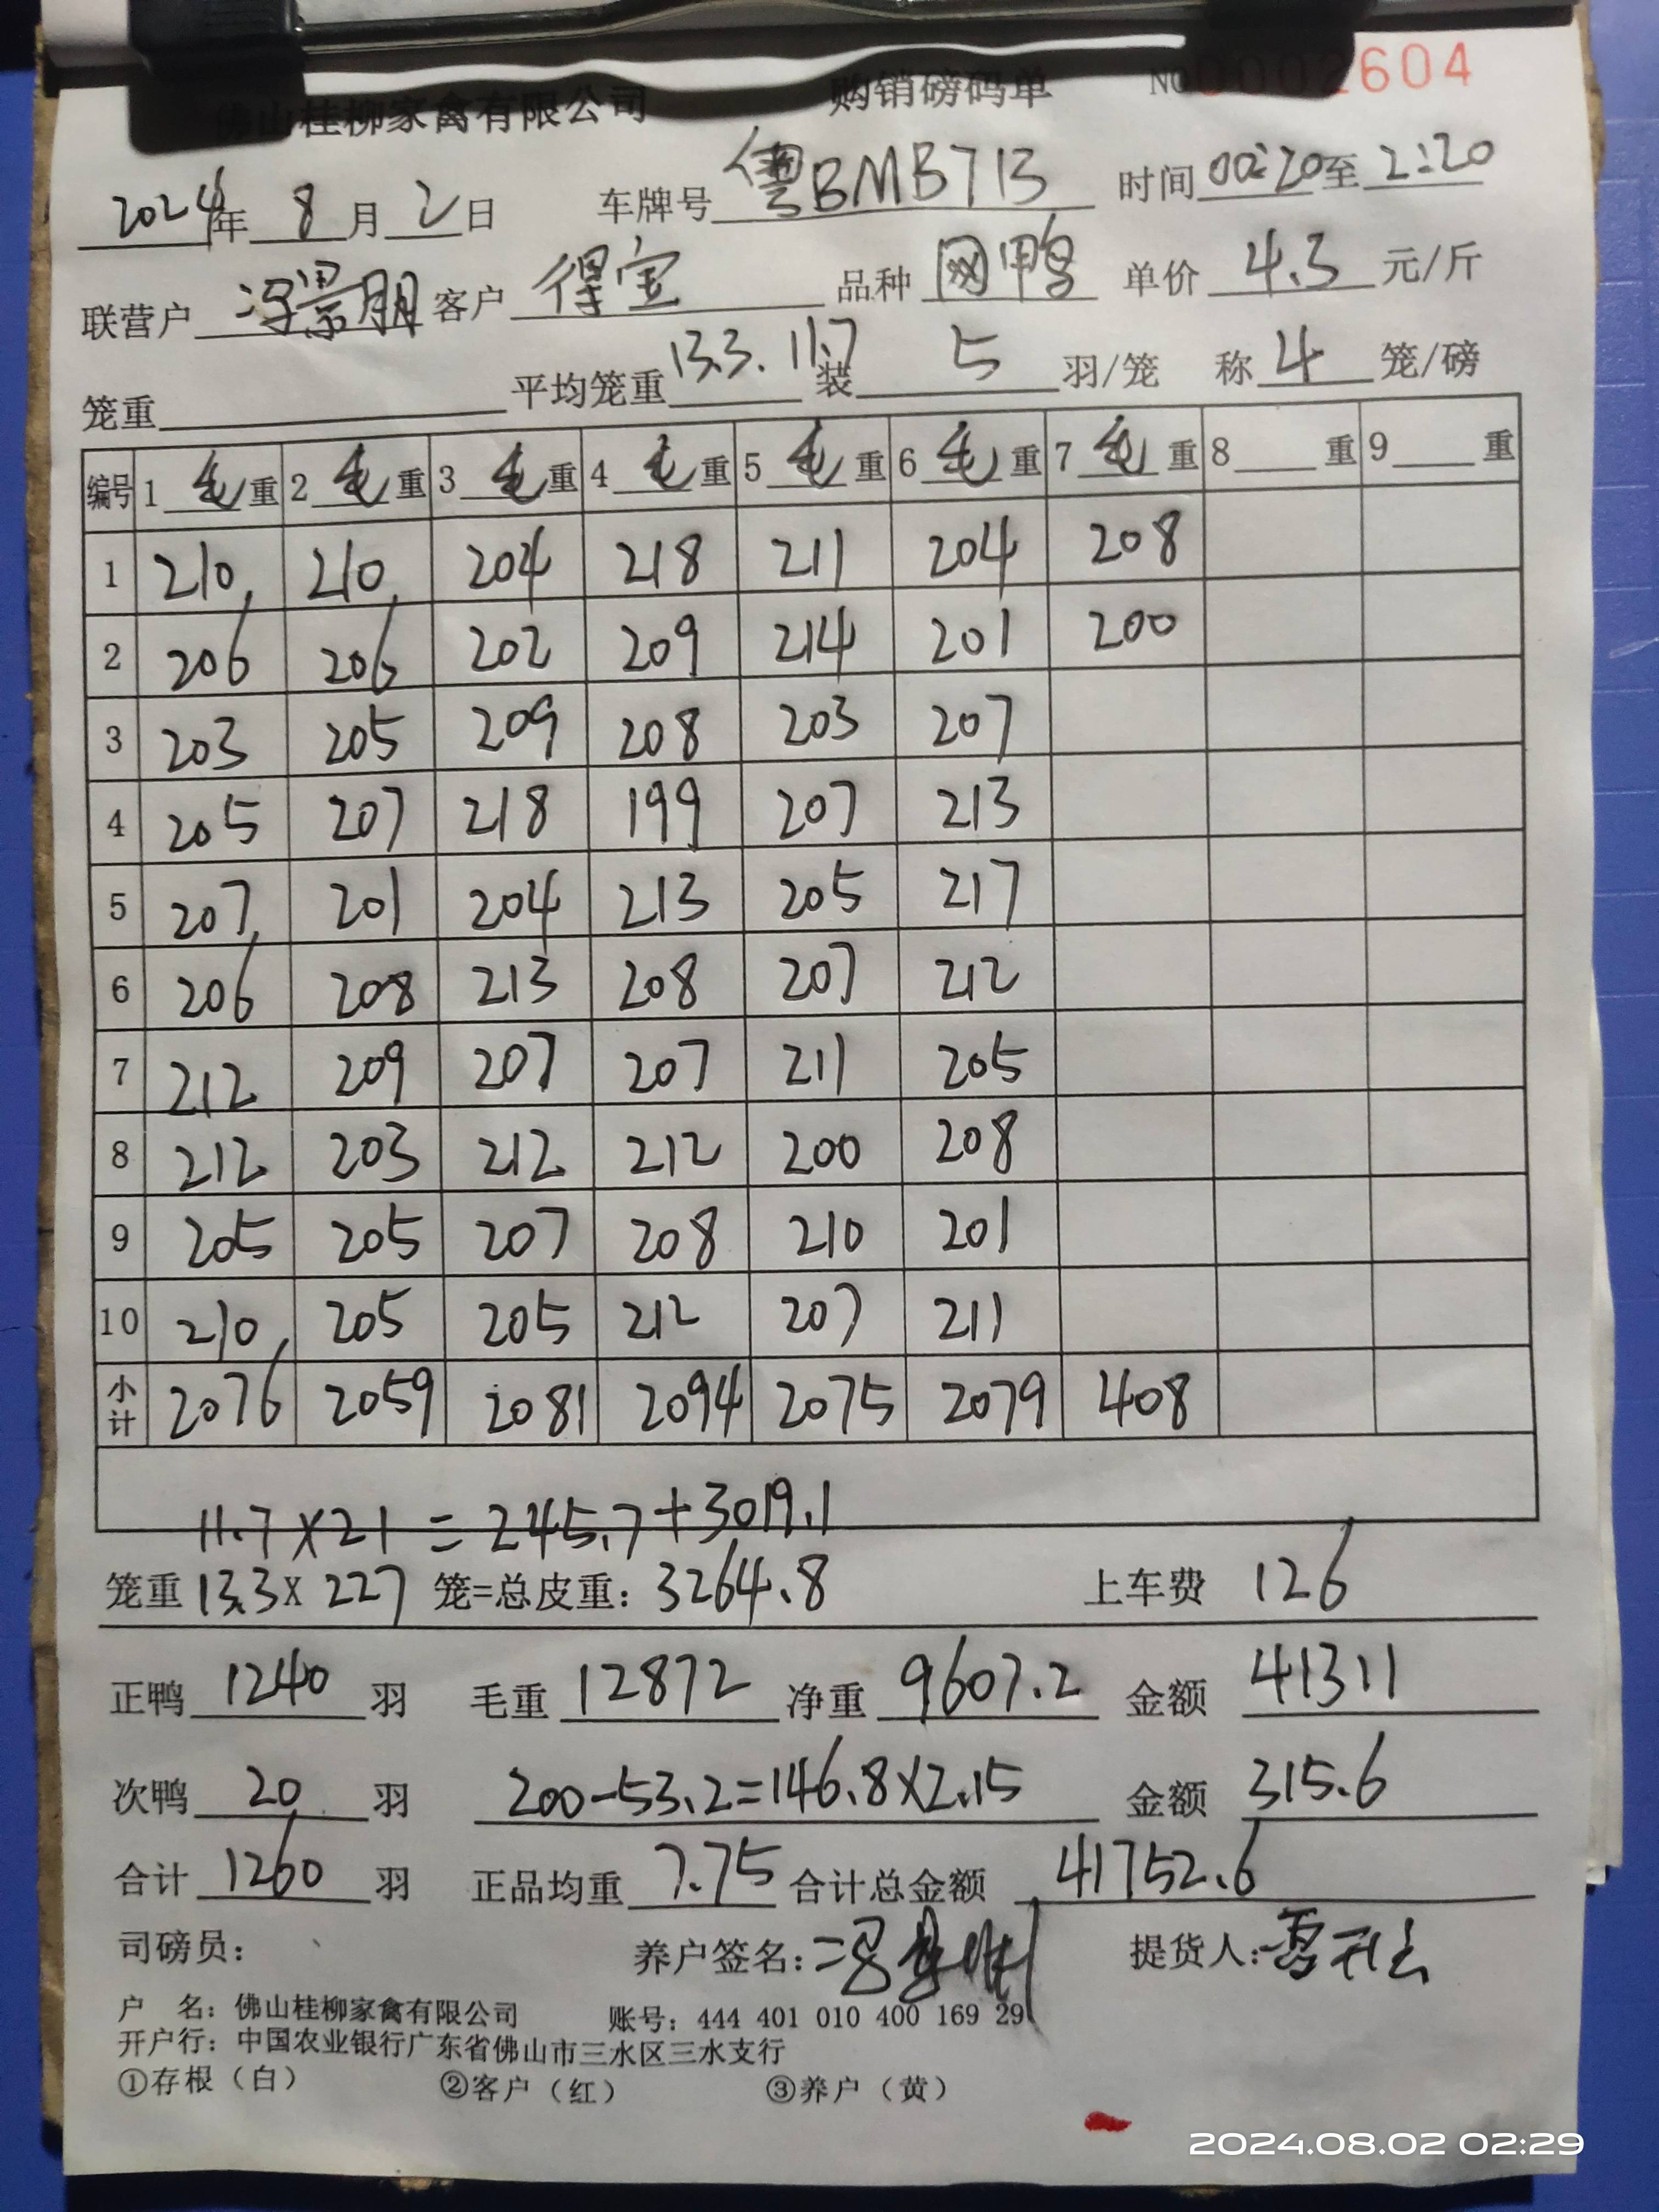 佛山桂柳家禽有限公司 购销磅码单 NO 0002604
2024年 8 月 2 日 车牌号 粤BMB713 时间 00:20 至 2:20
联营户 冯景朋 客户 得宝 品种 网鸭 单价 4.3 元/斤
笼重 平均笼重 13.3. 11.7 装 5 羽/笼 称 4 笼/磅
编号 1 毛 重 2 毛 重 3 毛 重 4 毛 重 5 毛 重 6 毛 重 7 毛 重 8 重 9 重
1 210 210 204 218 211 204 208
2 206 206 202 209 214 201 200
3 203 205 209 208 203 207
4 205 207 218 199 207 213
5 207 201 204 213 205 217
6 206 208 213 208 207 212
7 212 209 207 207 211 205
8 212 203 212 212 200 208
9 205 205 207 208 210 201
10 210 205 205 212 207 211
小计 2076 2059 2081 2094 2075 2079 408
11.7×21=245.7+3019.1
笼重 13.3× 227 笼=总皮重: 3264.8 上车费 126
正鸭 1240 羽 毛重 12872 净重 9607.2 金额 41311
次鸭 20 羽 200-53.2=146.8×2.15 金额 315.6
合计 1260 羽 正品均重 7.75 合计总金额 41752.6
司磅员: 养户签名: 提货人:
户 名: 佛山桂柳家禽有限公司 账号: 444 401 010 400 169 29
开户行: 中国农业银行广东省佛山市三水区三水支行
①存根（白） ②客户（红） ③养户（黄）
2024.08.02 02:29